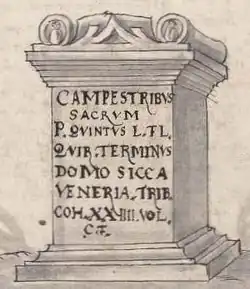 CAMPESTRIBVS
SACRVM
P. QVINTVS L. FL.
QVIR. TERMINUS
DOMO SICCA
VENERIA. TRIB.
COH. XXIIII. VOL.
C.F.